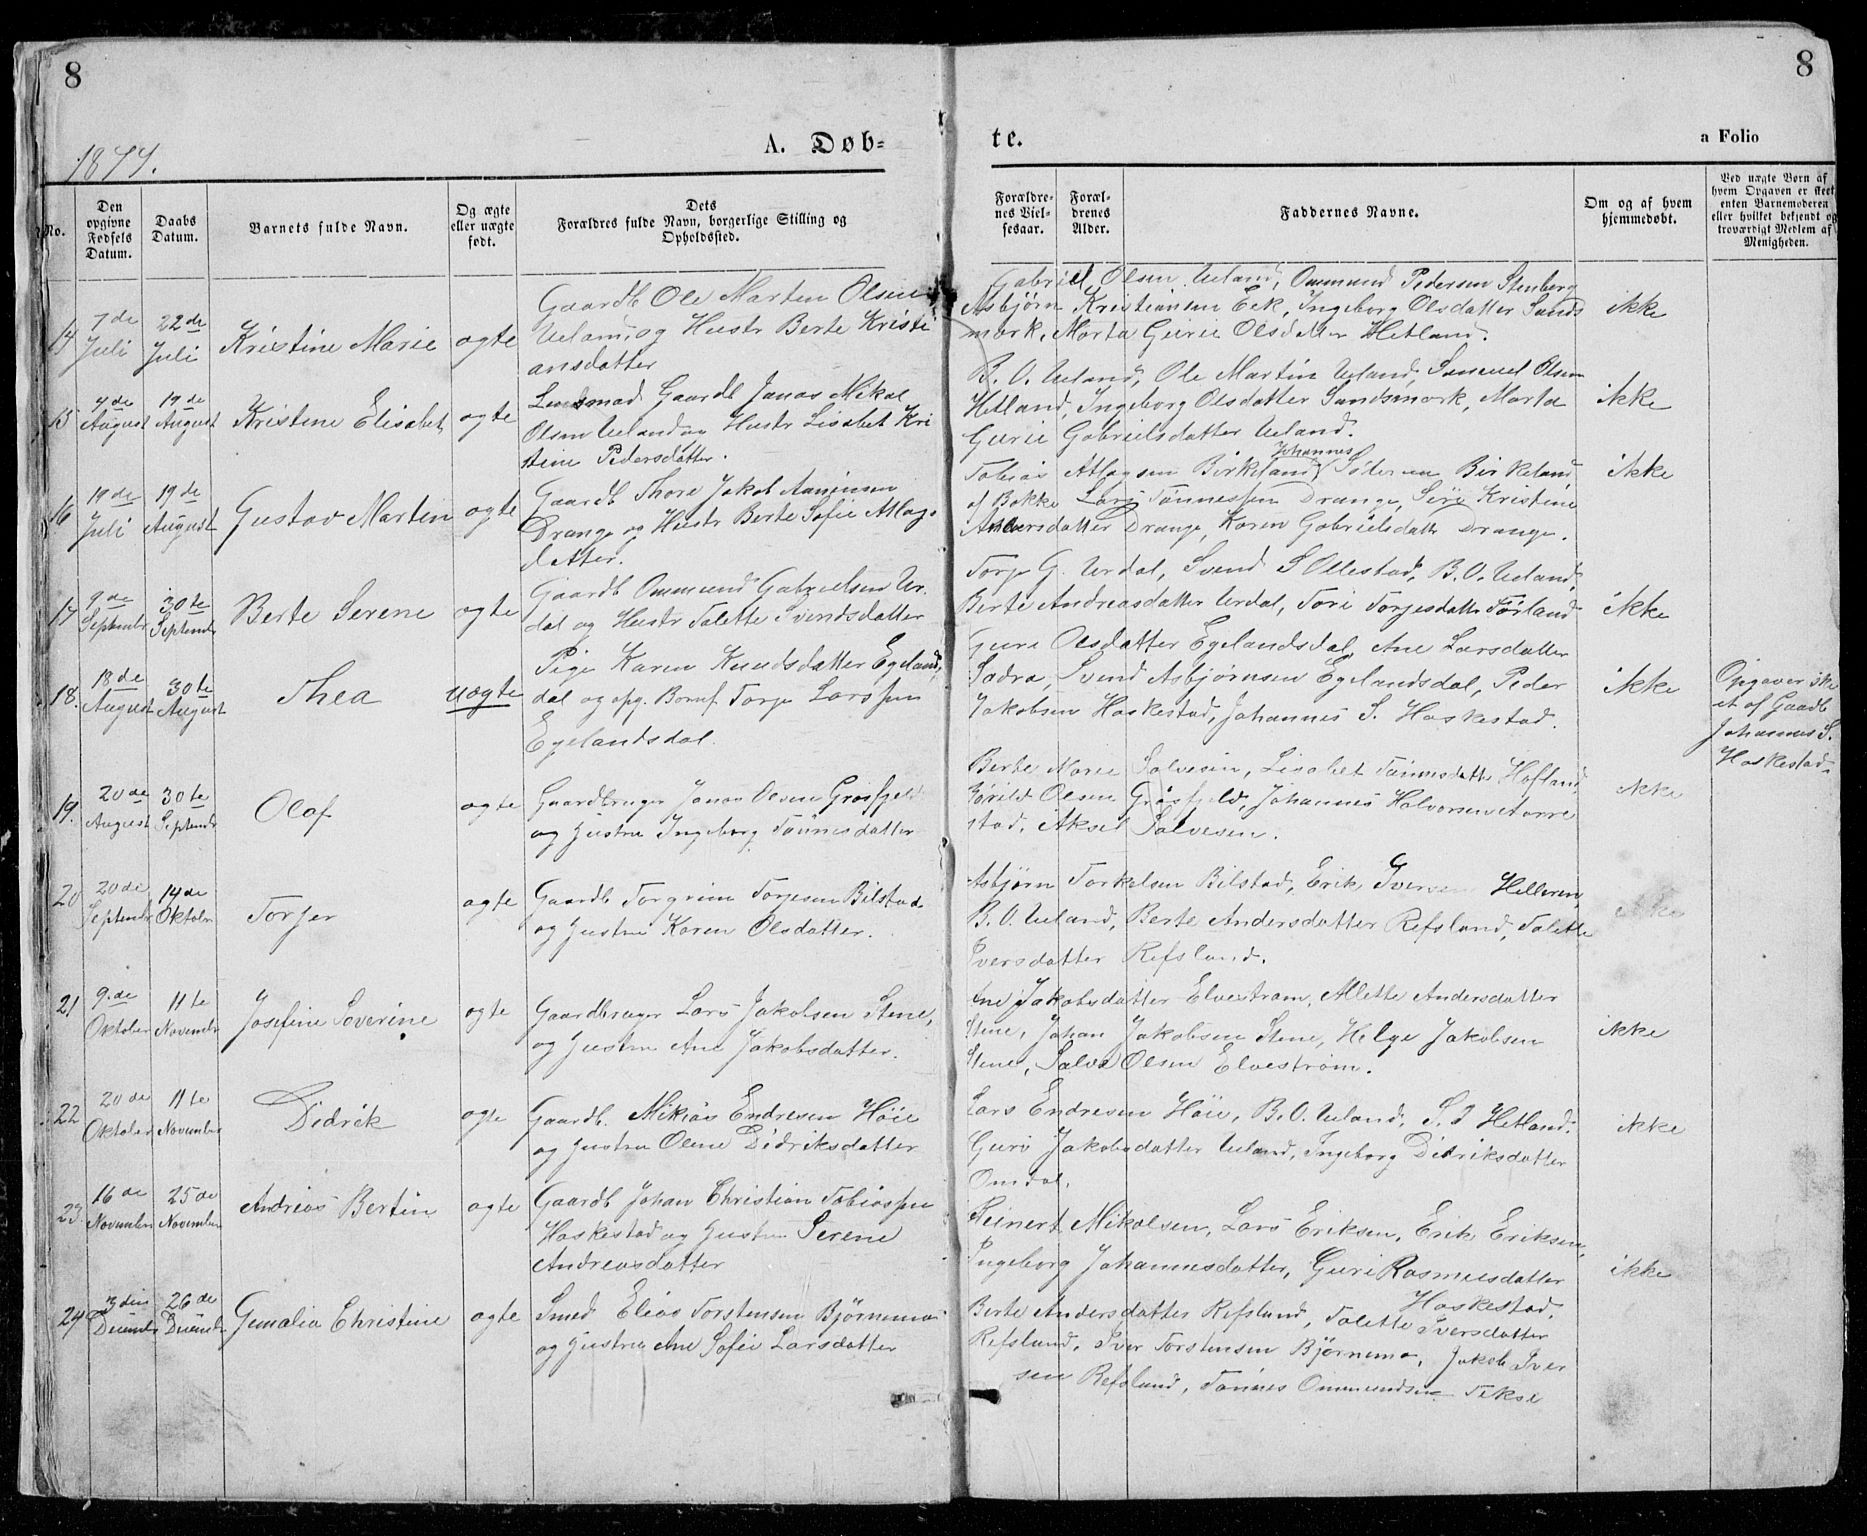 8
8
1877.
A. Døb=
te.
a Folio
No.
Den opgivne Fødsels Datum.
Daabs Datum.
Barnets fulde Navn.
Og ægte eller uægte født.
Dets Forældres fulde Navn, borgerlige Stilling og Opholdssted.
Forældrenes Vielsesaar.
Forældrenes Alder.
Faddernes Navne.
Om og af hvem hjemmedøbt.
Ved uægte Børn af hvem Opgaven er skeet enten Barnemoderen eller hvilket bekjendt og troværdigt Medlem af Menigheden.
14 7de Juli 22de Juli Kristine Marie ægte
Gaardb Ole Martin Olsen
Ueland og Hustr Berte Kristi
ansdatter
Gabriel Olsen Ueland, Ommund Pedersen Stenberg
Asbjørn Kristiansen Eek, Ingeborg Olsdatter Sands
mark, Marta Gurie Olsdatter Hetland.
ikke
15 4de August 19de August Kristine Elisabet ægte
Gaardb Jonas Mikal
Olsen Ueland og Hustr Lisabet Kri
stine Pedersdatter.
B. O. Ueland, Ole Martin Ueland, Samuel Olsen
Hetland, Ingeborg Olsdatter Sandsmark, Marta
Gurie Gabrielsdatter Ueland.
ikke
16 19de Juli 19de August Gustav Martin ægte
Gaardb Thore Jakob Aanensen
Drange og Hustr Berte Sofie Atlags
datter.
Johannes
Tobias Atlagsen Birkeland, Birkeland
Bakke Lars Tönnessen Drange, Siri Kristine
Andersdatter Drange, Karen Gabrielsdatter Drange.
ikke
17 9de September 30te September Berte Serene ægte
Gaardb Ommund Gabrielsen Ur
dal og Hustr Talette Svendsdatter
Torje G. Urdal, Svend S Ollestad, B. O. Ueland,
Berte Andreasdatter Urdal, Tori Torjesdatter Förland
ikke
18. 18de August 30te August Thea uægte
Pige Karen Knudsdatter Egelands
dal og opg. Barnf Torje Larssen
Egelandsdal.
Guri Olsdatter Egelandsdal, Ane Larsdatter
Sadra, Svend Asbjørnsen Egelandsdal, Peder
Jakobsen Haskestad, Johannes S. Haskestad.
ikke
Opgaver ske
et af Gaardb
Johannes S.
Haskestad.
19. 20de August 30te Septembr Olaf ægte
Gaardbruger Jonas Olsen Grøsfjeld
og Hustru Ingeborg Tönnesdatter
Berte Marie Salvesen, Lisabet Tönnesdatter Hofland,
Børild Olsen Grøsfjeld, Johannes Halvorsen Aarre
stad, Aksel Salvesen.
ikke
20 20de Septembr 14de Oktober Torjer ægte
Gaardb Torgrim Torjesen Bilstad
og Hustru Karen Olsdatter.
Asbjörn Torkelsen Bilstad, Erik Iversen Helleren,
B. O. Ueland, Berte Andersdatter Refsland, Talette
Iversdatter Refsland.
ikke
21 9.de Oktober 11te November Josefine Severine ægte
Gaardbruger Lars Jakobsen Stene,
og Hustru Ane Jakobsdatter.
Ane Jakobsdatter Elvestrøm, Alette Andersdatter
Stene, Johan Jakobsen Stene, Helge Jakobsen
Stene, Salve Olsen Elvestrøm.
ikke
22 20de Oktober 11te November Didrik ægte
Gaardb. Mikias Endresen Höie
og Hustru Olene Didriksdatter
Lars Endresen Höie, B. O. Ueland, S. O Hetland.
Guri Jakobsdatter Ueland, Ingeborg Didriksdatter
Omdal.
ikke
23. 16de November 25de November Andreas Bertin ægte
Gaardb Johan Christian Tobiassen
Haskestad og Hustru Serene
Andreasdatter
Reinert Mikalsen, Lars Eriksen, Erik Eriksen,
Ingeborg Johannesdatter, Guri Rasmusdatter
Haskestad.
ikke
24 3die December 26de December Gemalia Christine ægte
Smed Elias Torstensen Björnemo
og Hustru Ane Sofie Larsdatter
Berte Andersdatter Refsland, Talette Iversdatter
Refsland, Iver Torstensen Björnemo, Jakob Iver
sen Refsland, Tönnes Ommundsen Tekse